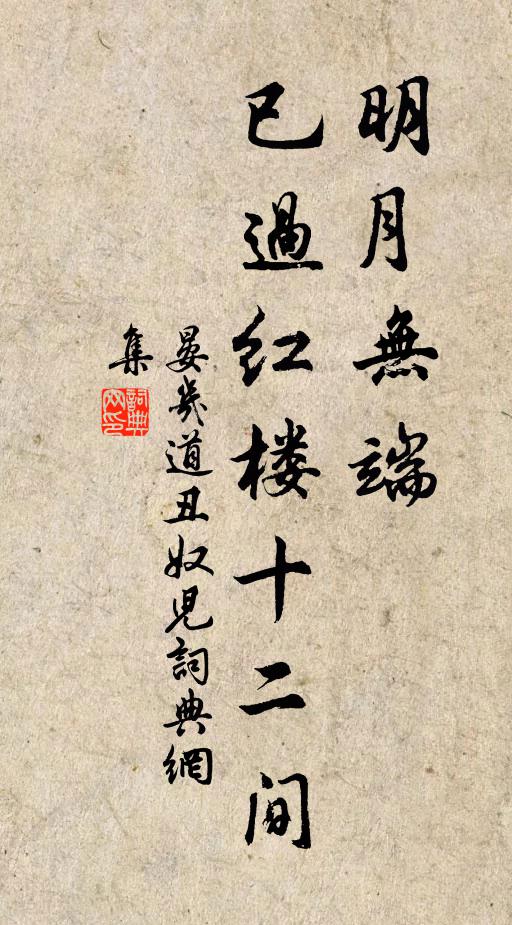 明月無端
已過红楼十二間
晏幾道丑奴兒詞典網
集
詞典網印